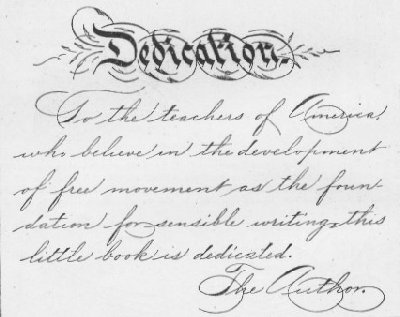 Dedication.
To the teachers of America,
who believe in the development
of free movement as the foun-
dation for sensible writing, this
little book is dedicated.
The Author.